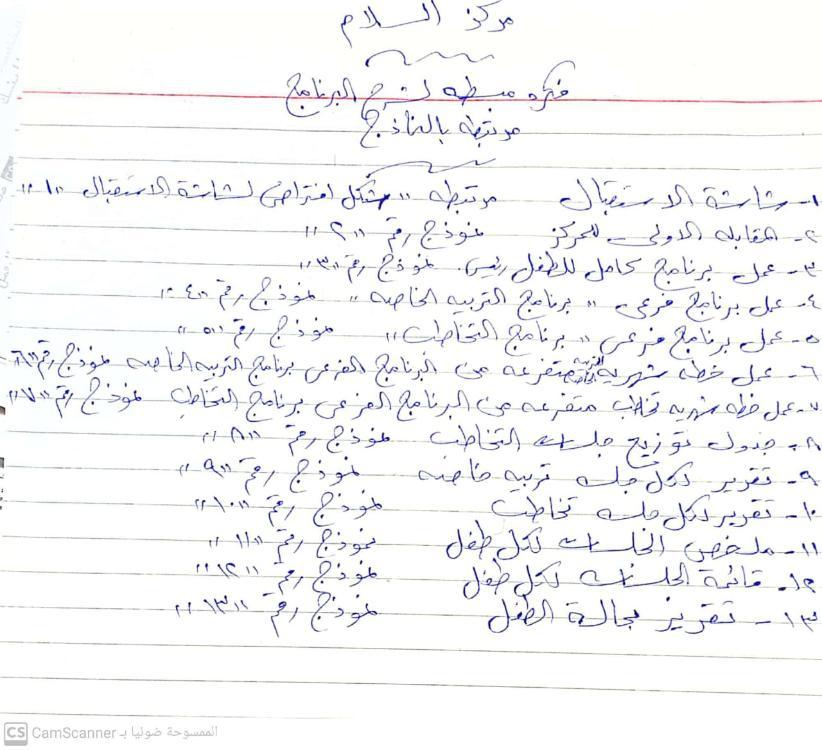 مركز السلام
فكره مبسطه لشرح البرنامج
مرتبطه بالنماذج
١- شاشة الاستقبال مرتبطه "بشكل افتراضى لشاشة الاستقبال "١"
٢- المقابله الاولى للمركز نموذج رقم "٢"
٣- عمل برنامج كامل للطفل رئيسى. نموذج رقم "٣"
٤- عمل برنامج فرعى "برنامج التربيه الخاصه" نموذج رقم "٤"
٥- عمل برنامج فرعى "برنامج التخاطب" نموذج رقم "٥"
٦- عمل خطه شهريه تربيه خاصه متفرعه من البرنامج الفرعى برنامج التربيه الخاصه نموذج رقم "٦"
٧- عمل خطه شهريه تخاطب متفرعه من البرنامج الفرعى برنامج التخاطب نموذج رقم "٧"
٨- جدول توزيع جلسات التخاطب نموذج رقم "٨"
٩- تقرير لكل جلسه تربيه خاصه نموذج رقم "٩"
١٠- تقرير لكل جلسه تخاطب نموذج رقم "١٠"
١١- ملخص الجلسات لكل طفل نموذج رقم "١١"
١٢- قائمة الجلسات لكل طفل نموذج رقم "١٢"
١٣- تقرير بحالة الطفل نموذج رقم "١٣"
CS CamScanner الممسوحة ضوئيا بـ